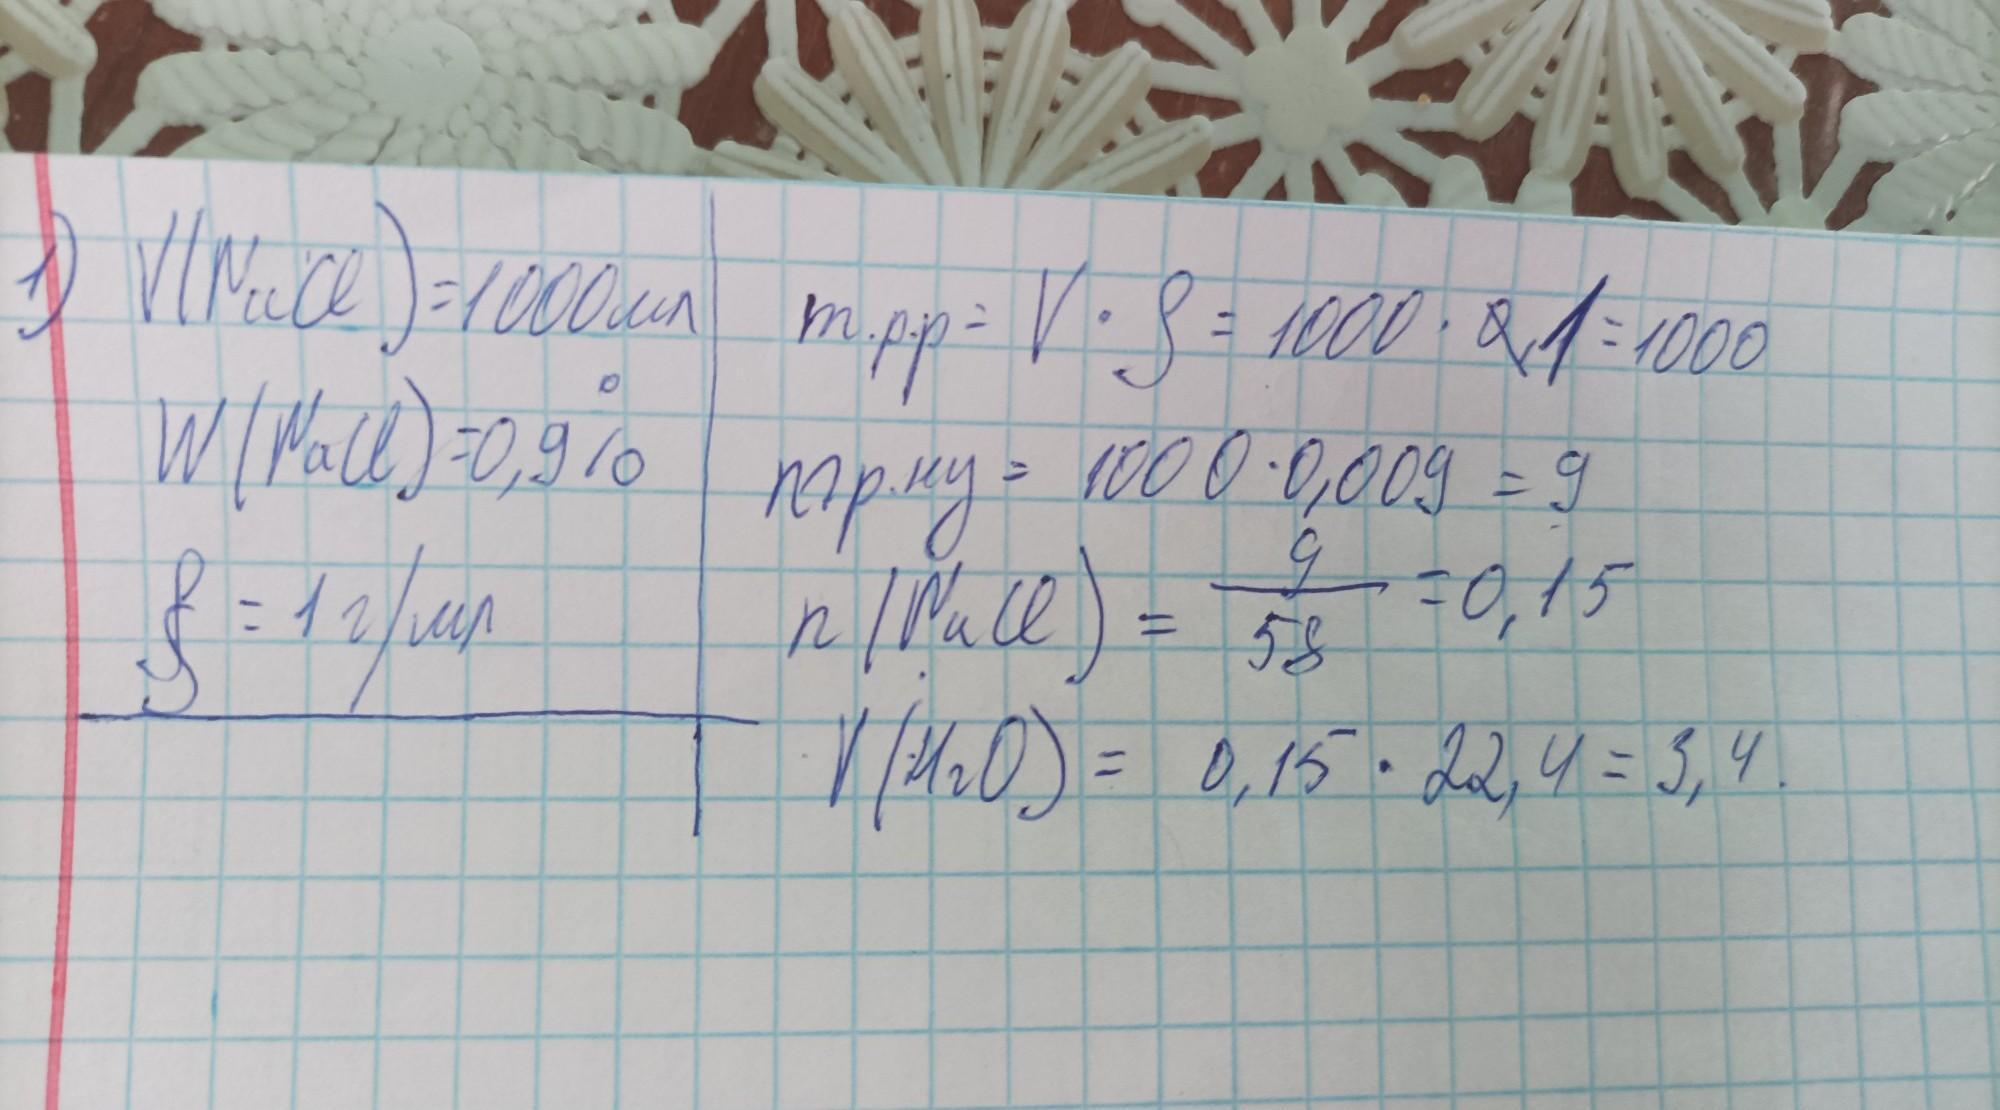 1) V(NaCl)=1000мл
W(NaCl)=0,9%
ρ = 1 г/мл
m.р.р = V · ρ = 1000 · 1 = 1000
mр.ну = 1000 · 0,009 = 9
n(NaCl) = 9/58 = 0,15
V(H2O) = 0,15 · 22,4 = 3,4.